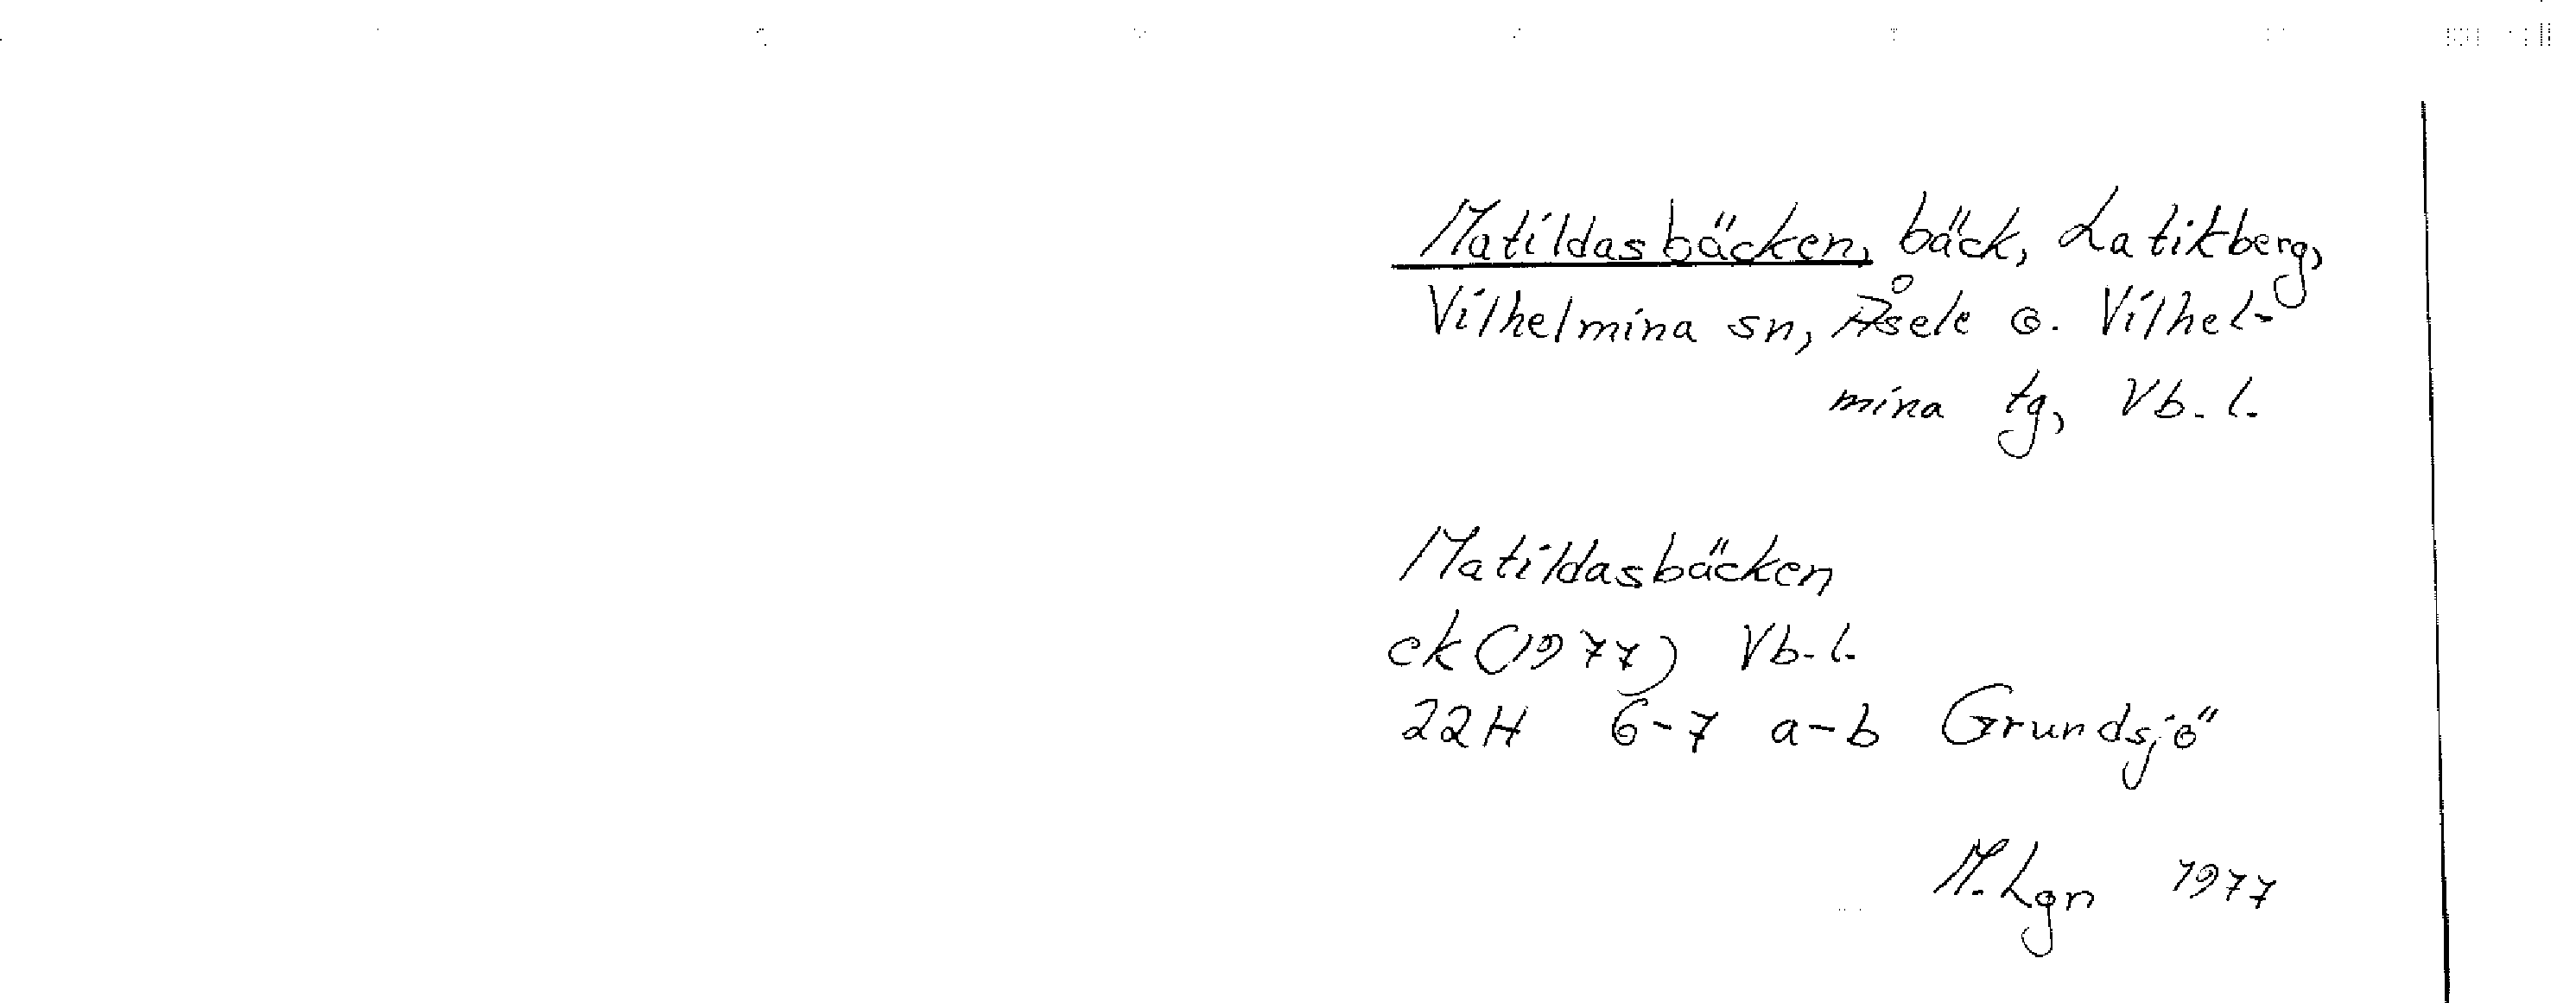 Matildasbäcken, bäck, Latikberg,
Vilhelmina sn, Åsele o. Vilhel-
mina tg, Vb. l.
Matildasbäcken
ek (1977) Vb. l.
22H 6-7 a-b Grundsjö
M. Lgn 1977